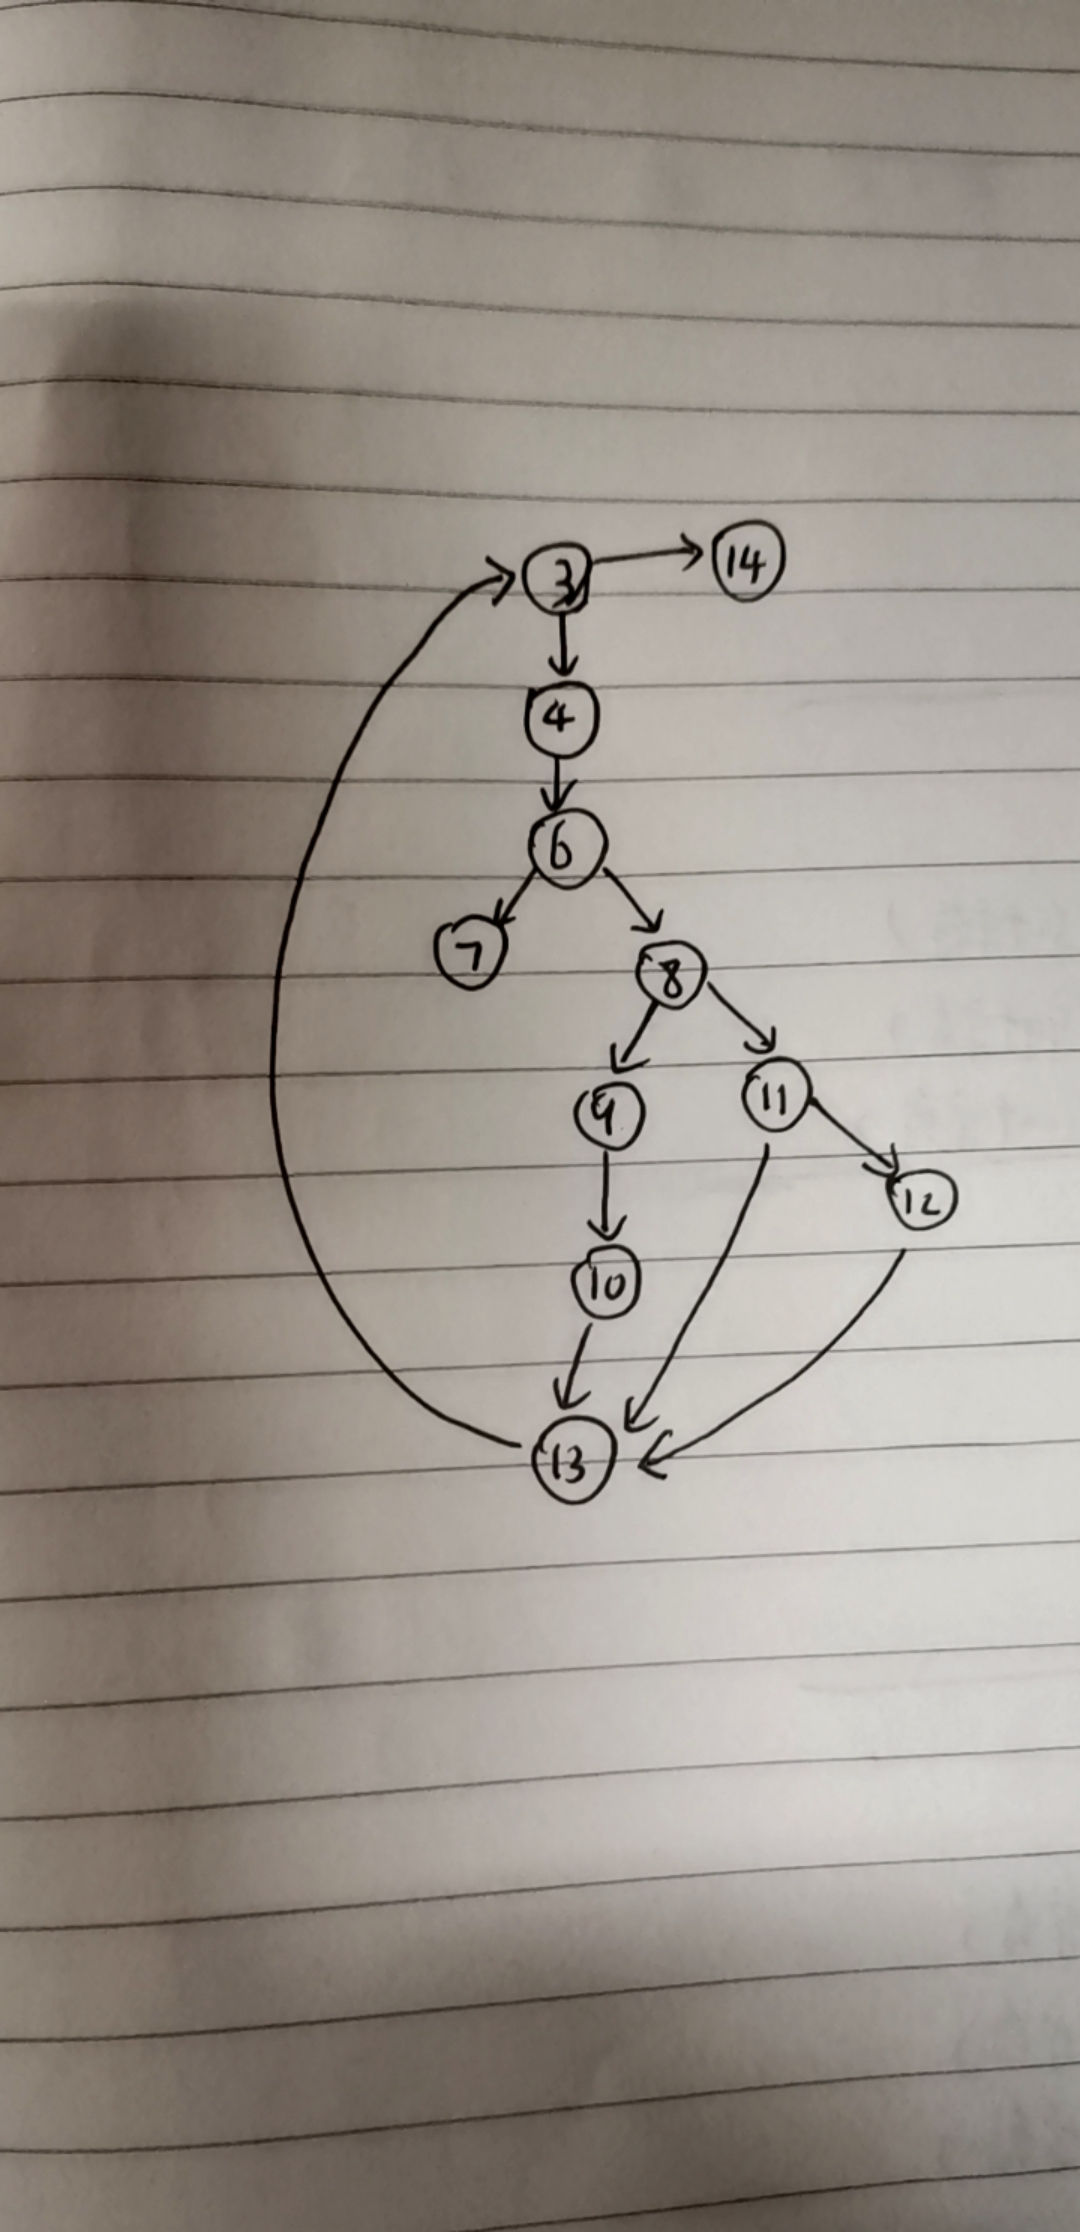 3 14
4
6
7
8
9
11
12
10
13